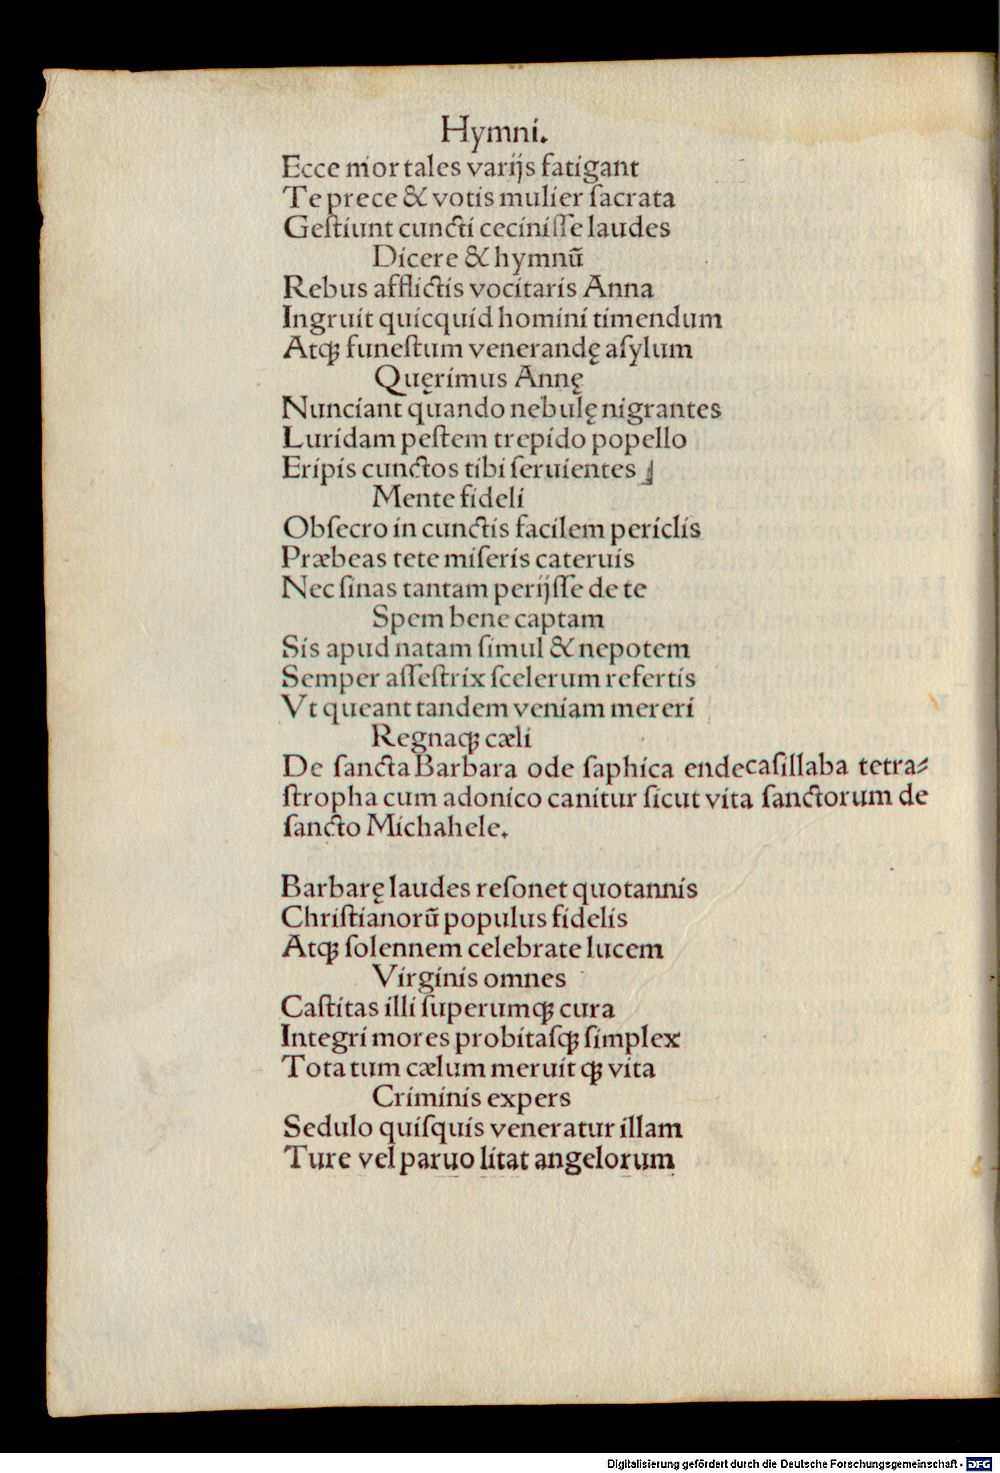 Hymni.
Ecce mortales varijs fatigant
Te prece & votis mulier ſacrata
Geſtiunt cuncti ceciniſſe laudes
Dicere & hymnū
Rebus afflictis vocitaris Anna
Ingruit quicquid homini timendum
Atqꝫ funeſtum venerandę aſylum
Quęrimus Annę
Nunciant quando nebulę nigrantes
Luridam peſtem trepido popello
Eripis cunctos tibi ſeruientes
Mente fideli
Obſecro in cunctis facilem periclis
Præbeas tete miſeris cateruis
Nec ſinas tantam perijſſe de te
Spem bene captam
Sis apud natam ſimul & nepotem
Semper aſſeſtrix ſcelerum refertis
Vt queant tandem veniam mereri
Regnaqꝫ cæli
De ſancta Barbara ode ſaphica endecaſillaba tetra⸗
ſtropha cum adonico canitur ſicut vita ſanctorum de
ſancto Michahele.
Barbarę laudes reſonet quotannis
Chriſtianorū populus fidelis
Atqꝫ ſolennem celebrate lucem
Virginis omnes
Caſtitas illi ſuperumqꝫ cura
Integri mores probitaſqꝫ ſimplex
Tota tum cælum meruit qꝫ vita
Criminis expers
Sedulo quiſquis veneratur illam
Ture vel paruo litat angelorum
Digitalisierung gefördert durch die Deutsche Forschungsgemeinschaft - DFG